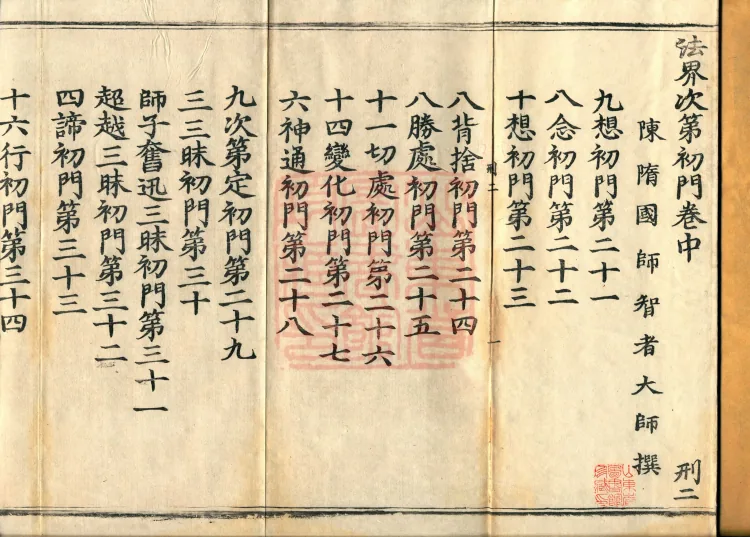 法界次第初門卷中 刑二
陳隋國師智者大師撰
九想初門第二十一
八念初門第二十二
十想初門第二十三
刑二 一
八背捨初門第二十四
八勝處初門第二十五
十一切處初門第二十六
十四變化初門第二十七
六神通初門第二十八
九次第定初門第二十九
三三昧初門第三十
師子奮迅三昧初門第三十一
超越三昧初門第三十二
四諦初門第三十三
十六行初門第三十四